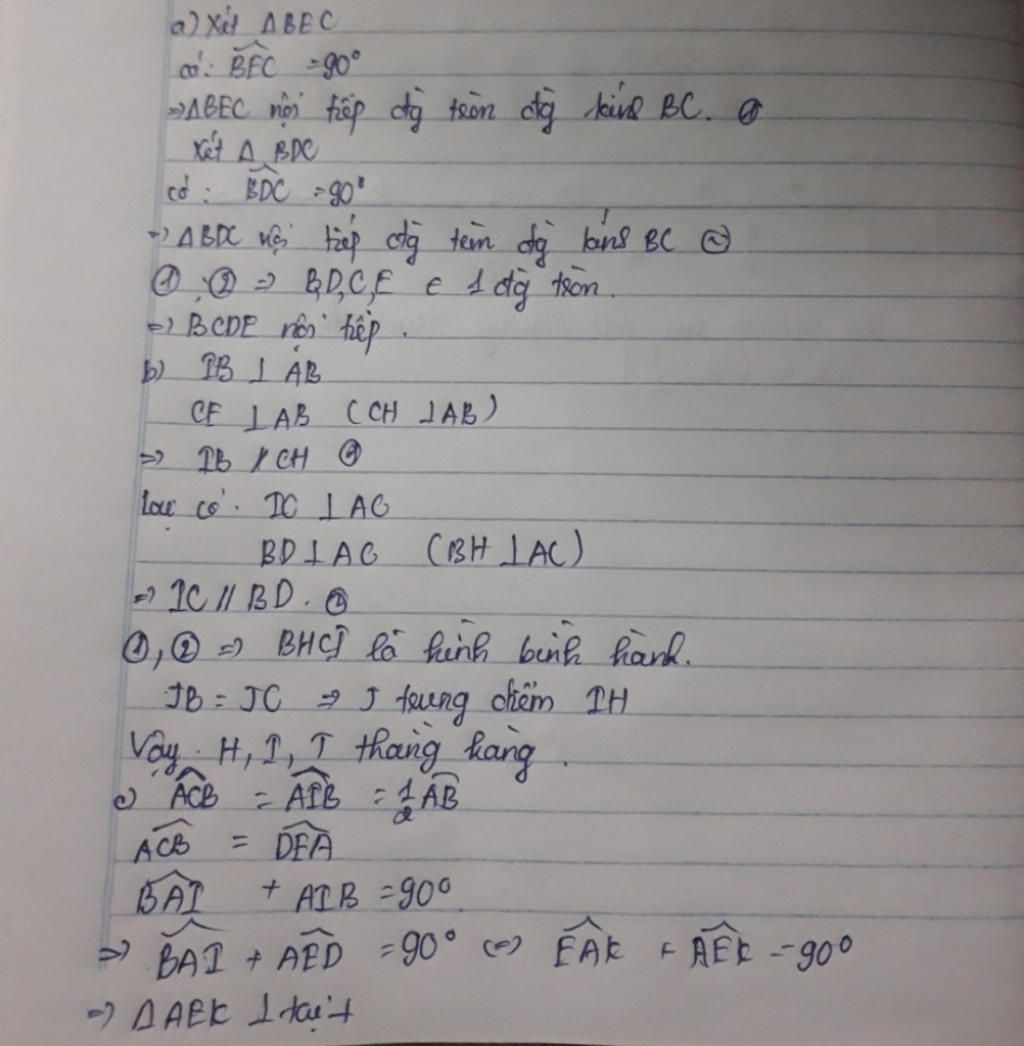 a) Xét ΔBEC
có: BEC = 90°
⇒ ΔBEC nội tiếp đg tròn đg kính BC. ①
Xét Δ BDC
có: BDC = 90°
⇒ ΔBDC nội tiếp đg tròn đg kính BC ②
①, ② ⇒ B,D,C,E ∈ 1 đg tròn.
⇒ BCDE nội tiếp.
b) IB ⊥ AB
CE ⊥ AB (CH ⊥ AB)
⇒ IB // CH ①
lại có. IC ⊥ AC
BD ⊥ AC (BH ⊥ AC)
⇒ IC // BD. ②
①, ② ⇒ BHCI là hình bình hành.
JB = JC ⇒ J trung điểm IH
Vậy. H, I, J thẳng hàng.
c) ACB = AIB = 1/2 AB
ACB = DEA
BAI + AIB = 90°
⇒ BAI + AED = 90° ⇔ EAK + AEK = 90°
⇒ ΔAEK ⊥ tại